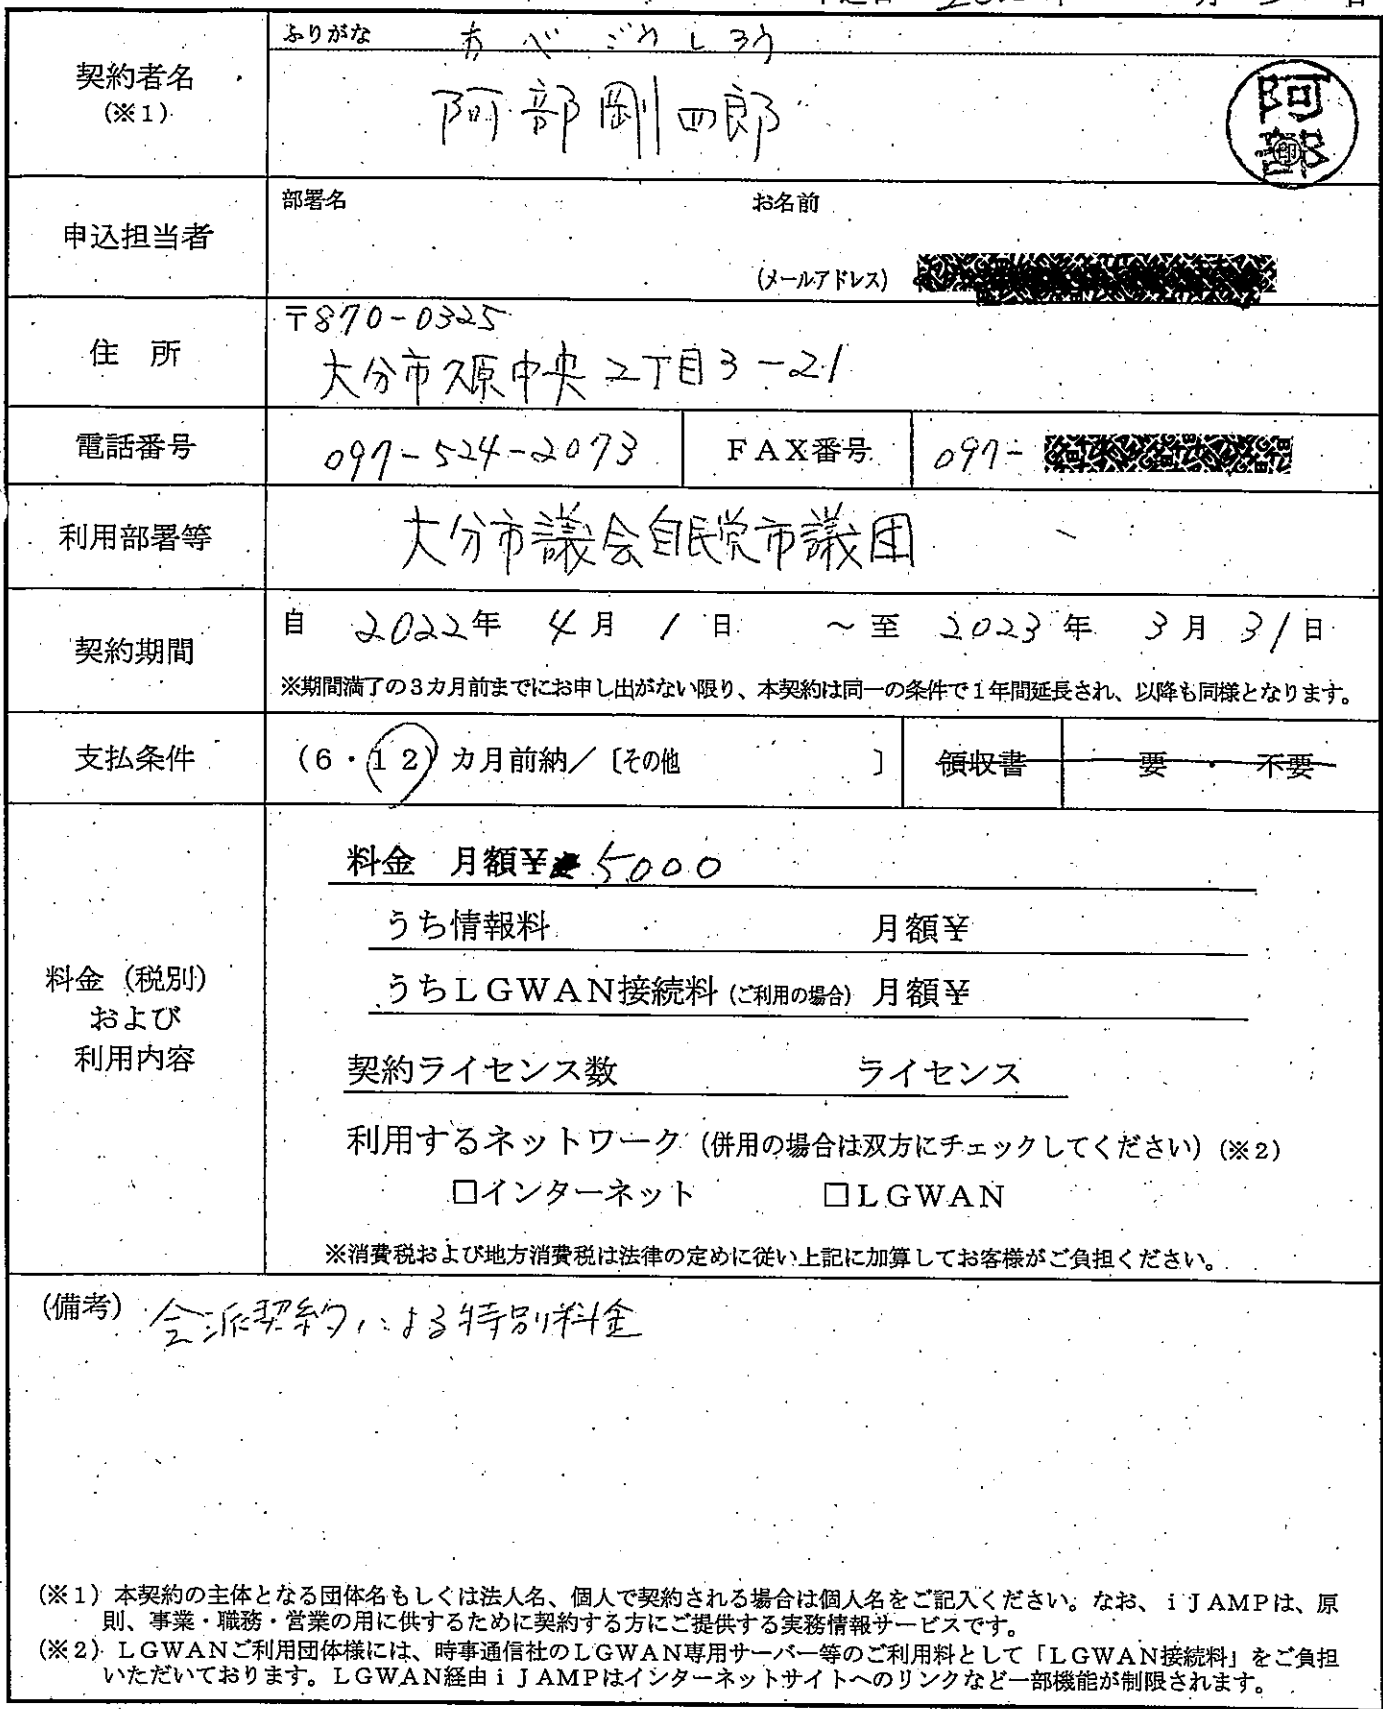 ふりがな あべ ごうしろう
契約者名
(※1)
阿部剛四郎
阿部
印
部署名 お名前
申込担当者
(メールアドレス)
〒870-0325
住 所
大分市久原中央2丁目3-21
電話番号 097-524-2073 FAX番号 097-
利用部署等 大分市議会自民党市議団
自 2022年 4月 1日 ～至 2023年 3月 31日
契約期間
※期間満了の3カ月前までにお申し出がない限り、本契約は同一の条件で1年間延長され、以降も同様となります。
支払条件 (6・12) カ月前納／〔その他 〕 領収書 要 ・ 不要
料金 月額¥ 5000
うち情報料 月額¥
うちLGWAN接続料 (ご利用の場合) 月額¥
料金（税別）
および
利用内容
契約ライセンス数 ライセンス
利用するネットワーク（併用の場合は双方にチェックしてください）(※2)
□インターネット □LGWAN
※消費税および地方消費税は法律の定めに従い上記に加算してお客様がご負担ください。
(備考) 会派契約による特別料金
(※1) 本契約の主体となる団体名もしくは法人名、個人で契約される場合は個人名をご記入ください。なお、iJAMPは、原
則、事業・職務・営業の用に供するために契約する方にご提供する実務情報サービスです。
(※2) LGWANご利用団体様には、時事通信社のLGWAN専用サーバー等のご利用料として「LGWAN接続料」をご負担
いただいております。LGWAN経由iJAMPはインターネットサイトへのリンクなど一部機能が制限されます。